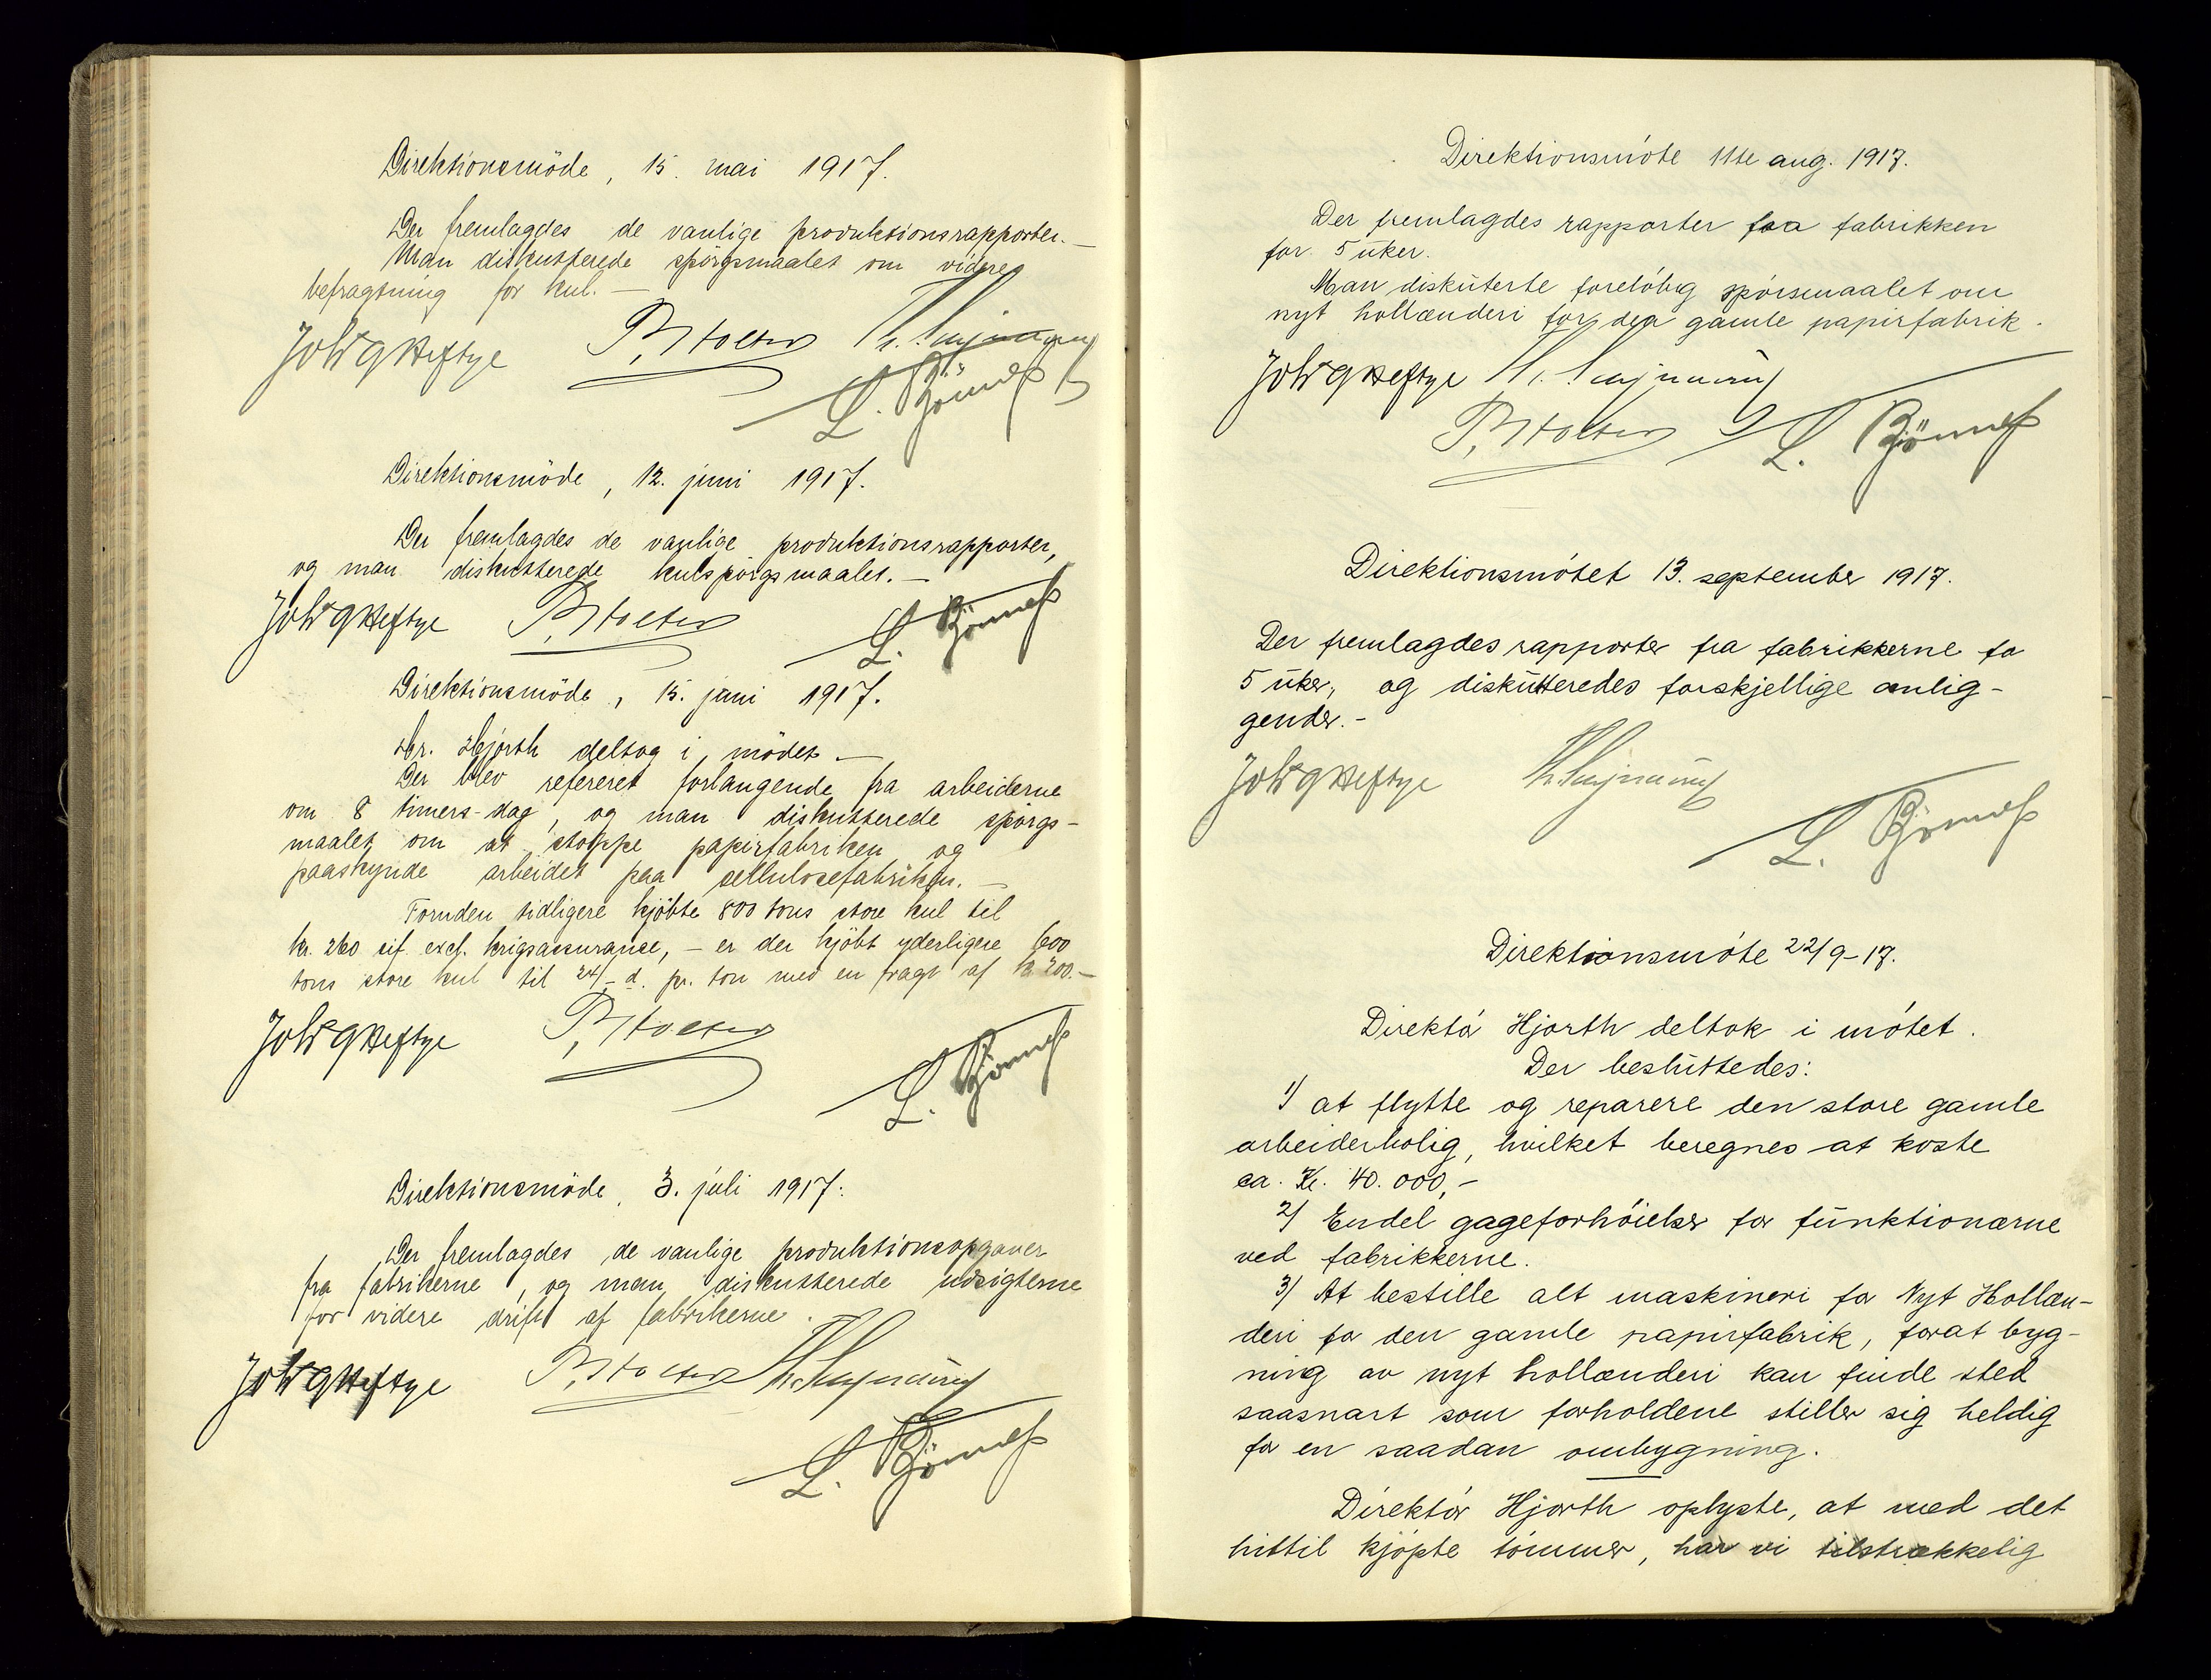 Direktionsmöde, 15. mai 1917.
Der fremlagdes de vanlige produktionsrapporter.—
Man diskutterede spörgsmaalet om videre
befragtning for kul.—
Joh G Heftye P. Holter
L. Bjönness
Direktionsmöde, 12. juni 1917.
Der fremlagdes de vanlige produktionsrapporter,
og man diskutterede kulspörgsmaalet.—
Joh G Heftye P. Holter
L. Bjönness
Direktionsmöde, 15. juni 1917.
Hr. Hjorth deltog i mödet.—
Der blev refereret forlangende fra arbeiderne
om 8 timers-dag, og man diskutterede spörgs-
maalet om at stoppe papirfabriken og
paaskynde arbeidet paa cellulosefabriken.—
Foruden tidligere kjöbte 800 tons store kul til
kr. 260 cif. excl. krigsassurance, – er der kjöbt yderligere 600
tons store kul til 24/- d. pr. ton med en fragt af kr 200.—
Joh G Heftye P. Holter
L. Bjönness
Direktionsmöde, 3. juli 1917.
Der fremlagdes de vanlige produktionsopgaver
fra fabrikerne, og man diskutterede udsigterne
for videre drift af fabrikerne.
Joh G Heftye P. Holter
L. Bjönness
Direktionsmóte 11te aug. 1917.
Der fremlagdes rapporter fra fabrikken
for 5 uker.
Man diskuterte foreløbig spórsmaalet om
nyt hollænderi for den gamle papirfabrik.
Joh G Heftye
P. Holter L. Bjönness
Direktionsmótet 13. september 1917.
Der fremlagdes rapporter fra fabrikkerne for
5 uker, og diskutteredes forskjellige anlig-
gender.-
Joh G Heftye
L. Bjönness
Direktionsmóte 22/9-17.
Direktór Hjorth deltok i mótet.
Der besluttedes:
1) at flytte og reparere den store gamle
arbeiderbolig, hvilket beregnes at koste
ca. Kr. 40.000,-
2) Endel gageforhóielser for funktionærne
ved fabrikkerne.
3) At bestille alt maskineri for Nyt Hollæn-
deri for den gamle papirfabrik, forat byg-
ning av nyt hollænderi kan finde sted
saasnart som forholdene stiller sig heldig
for en saadan ombygning.
Direktór Hjorth oplyste, at med det
hittil kjópte tómmer, har vi tilstrækkelig